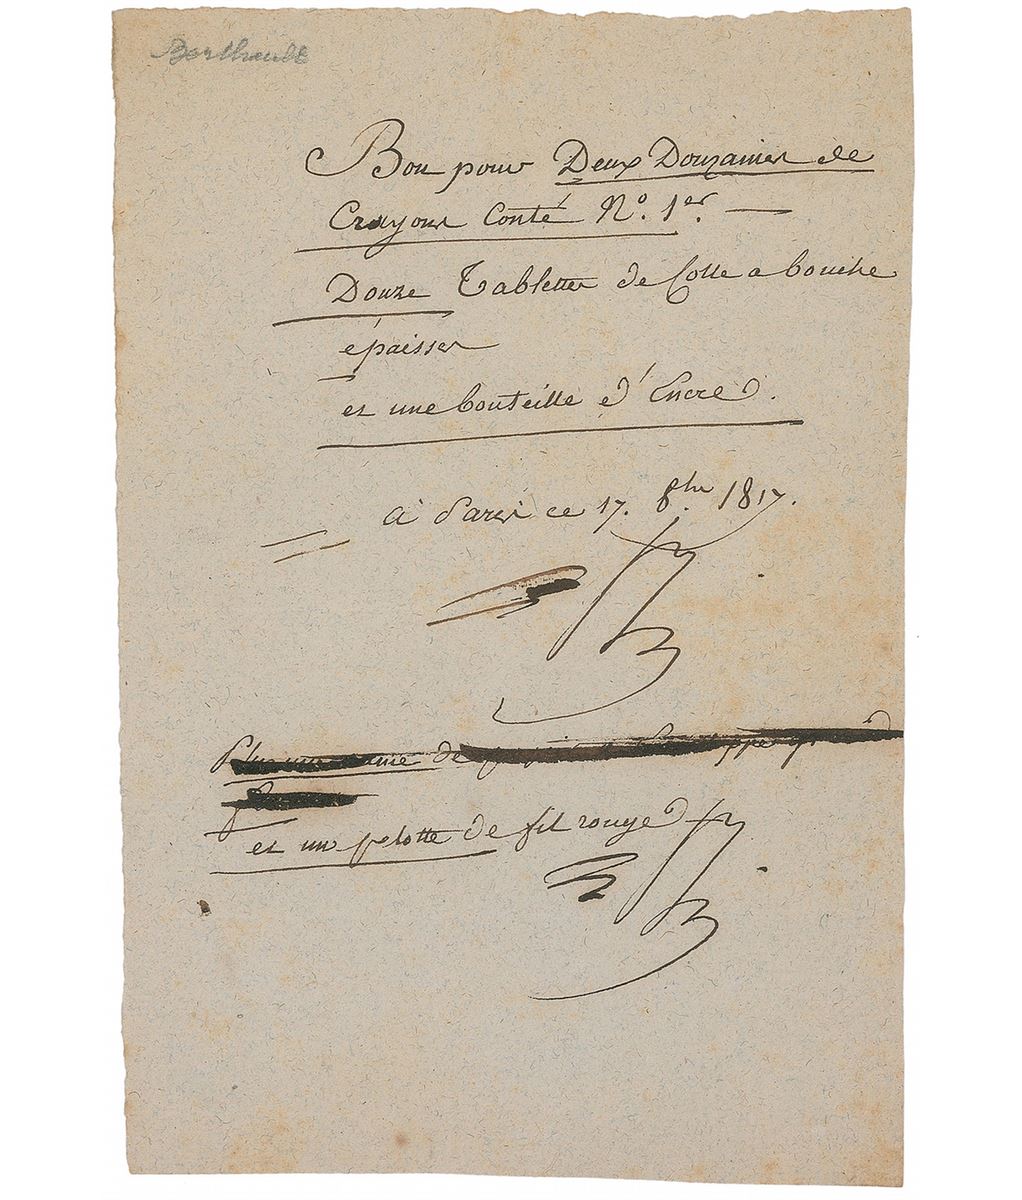 Berthault
Bon pour Deux Douzaines de
Crayons Conté N.o 1er. —
Douze Tablettes de Colle a bouche
épaisses
et une bouteille d'Encre.
à Paris ce 17. 8bre 1817.
Plus une de
et un pelotte de fil rouge